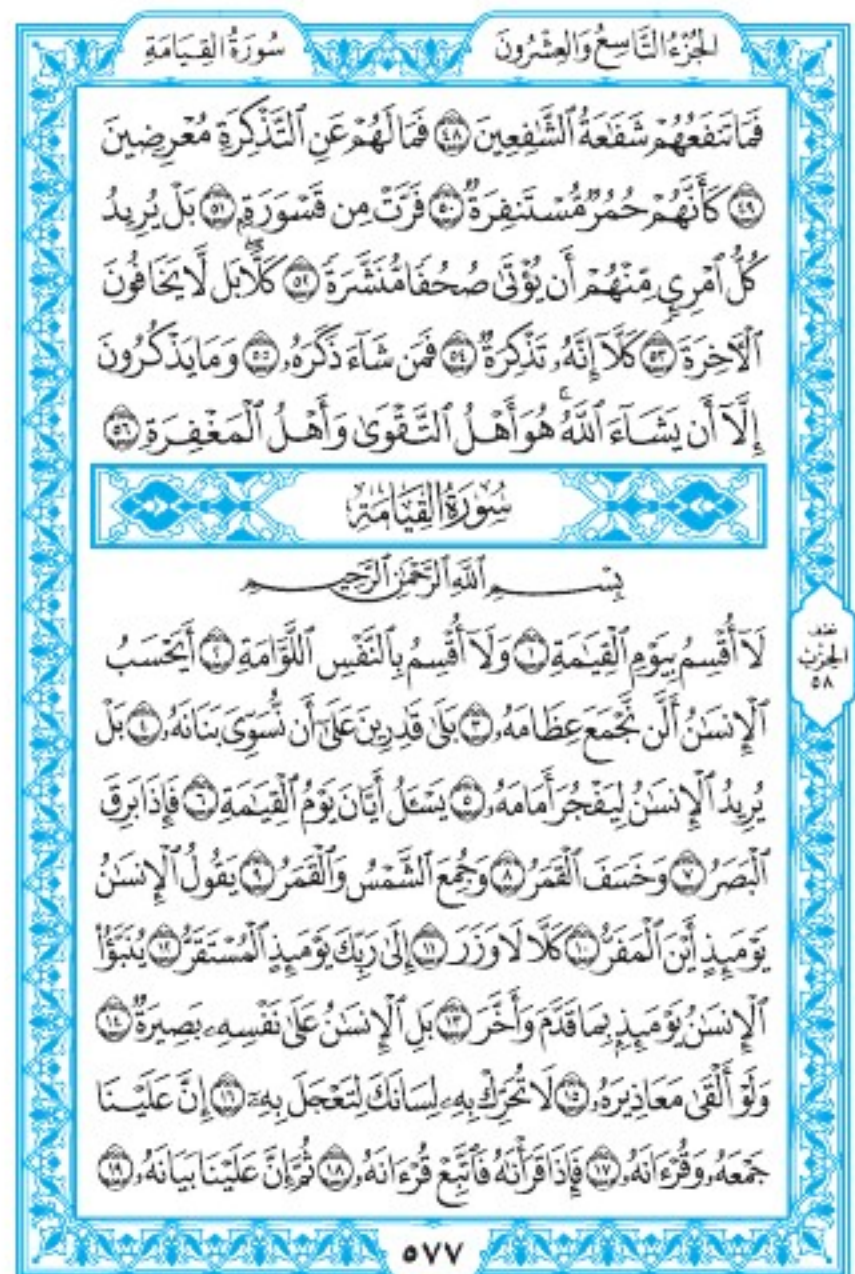 الجُزْءُ التَّاسِعُ وَالعِشْرُونَ
سُورَةُ القِيَامَةِ
فَمَا تَنفَعُهُمْ شَفَٰعَةُ ٱلشَّٰفِعِينَ ٤٨ فَمَا لَهُمْ عَنِ ٱلتَّذْكِرَةِ مُعْرِضِينَ
٤٩ كَأَنَّهُمْ حُمُرٌ مُّسْتَنفِرَةٌ ٥٠ فَرَّتْ مِن قَسْوَرَةٍ ٥١ بَلْ يُرِيدُ
كُلُّ ٱمْرِئٍ مِّنْهُمْ أَن يُؤْتَىٰ صُحُفًا مُّنَشَّرَةً ٥٢ كَلَّاۖ بَل لَّا يَخَافُونَ
ٱلْأٓخِرَةَ ٥٣ كَلَّآ إِنَّهُۥ تَذْكِرَةٌ ٥٤ فَمَن شَآءَ ذَكَرَهُۥ ٥٥ وَمَا يَذْكُرُونَ
إِلَّآ أَن يَشَآءَ ٱللَّهُۚ هُوَ أَهْلُ ٱلتَّقْوَىٰ وَأَهْلُ ٱلْمَغْفِرَةِ ٥٦
سُورَةُ القِيَامَةِ
بِسْمِ ٱللَّهِ ٱلرَّحْمَٰنِ ٱلرَّحِيمِ
لَآ أُقْسِمُ بِيَوْمِ ٱلْقِيَٰمَةِ ١ وَلَآ أُقْسِمُ بِٱلنَّفْسِ ٱللَّوَّامَةِ ٢ أَيَحْسَبُ
ٱلْإِنسَٰنُ أَلَّن نَّجْمَعَ عِظَامَهُۥ ٣ بَلَىٰ قَٰدِرِينَ عَلَىٰٓ أَن نُّسَوِّىَ بَنَانَهُۥ ٤ بَلْ
يُرِيدُ ٱلْإِنسَٰنُ لِيَفْجُرَ أَمَامَهُۥ ٥ يَسْـَٔلُ أَيَّانَ يَوْمُ ٱلْقِيَٰمَةِ ٦ فَإِذَا بَرِقَ
ٱلْبَصَرُ ٧ وَخَسَفَ ٱلْقَمَرُ ٨ وَجُمِعَ ٱلشَّمْسُ وَٱلْقَمَرُ ٩ يَقُولُ ٱلْإِنسَٰنُ
يَوْمَئِذٍ أَيْنَ ٱلْمَفَرُّ ١٠ كَلَّا لَا وَزَرَ ١١ إِلَىٰ رَبِّكَ يَوْمَئِذٍ ٱلْمُسْتَقَرُّ ١٢ يُنَبَّؤُا۟
ٱلْإِنسَٰنُ يَوْمَئِذٍۭ بِمَا قَدَّمَ وَأَخَّرَ ١٣ بَلِ ٱلْإِنسَٰنُ عَلَىٰ نَفْسِهِۦ بَصِيرَةٌ ١٤
وَلَوْ أَلْقَىٰ مَعَاذِيرَهُۥ ١٥ لَا تُحَرِّكْ بِهِۦ لِسَانَكَ لِتَعْجَلَ بِهِۦٓ ١٦ إِنَّ عَلَيْنَا
جَمْعَهُۥ وَقُرْءَانَهُۥ ١٧ فَإِذَا قَرَأْنَٰهُ فَٱتَّبِعْ قُرْءَانَهُۥ ١٨ ثُمَّ إِنَّ عَلَيْنَا بَيَانَهُۥ ١٩
نصف
الحزب
٥٨
٥٧٧